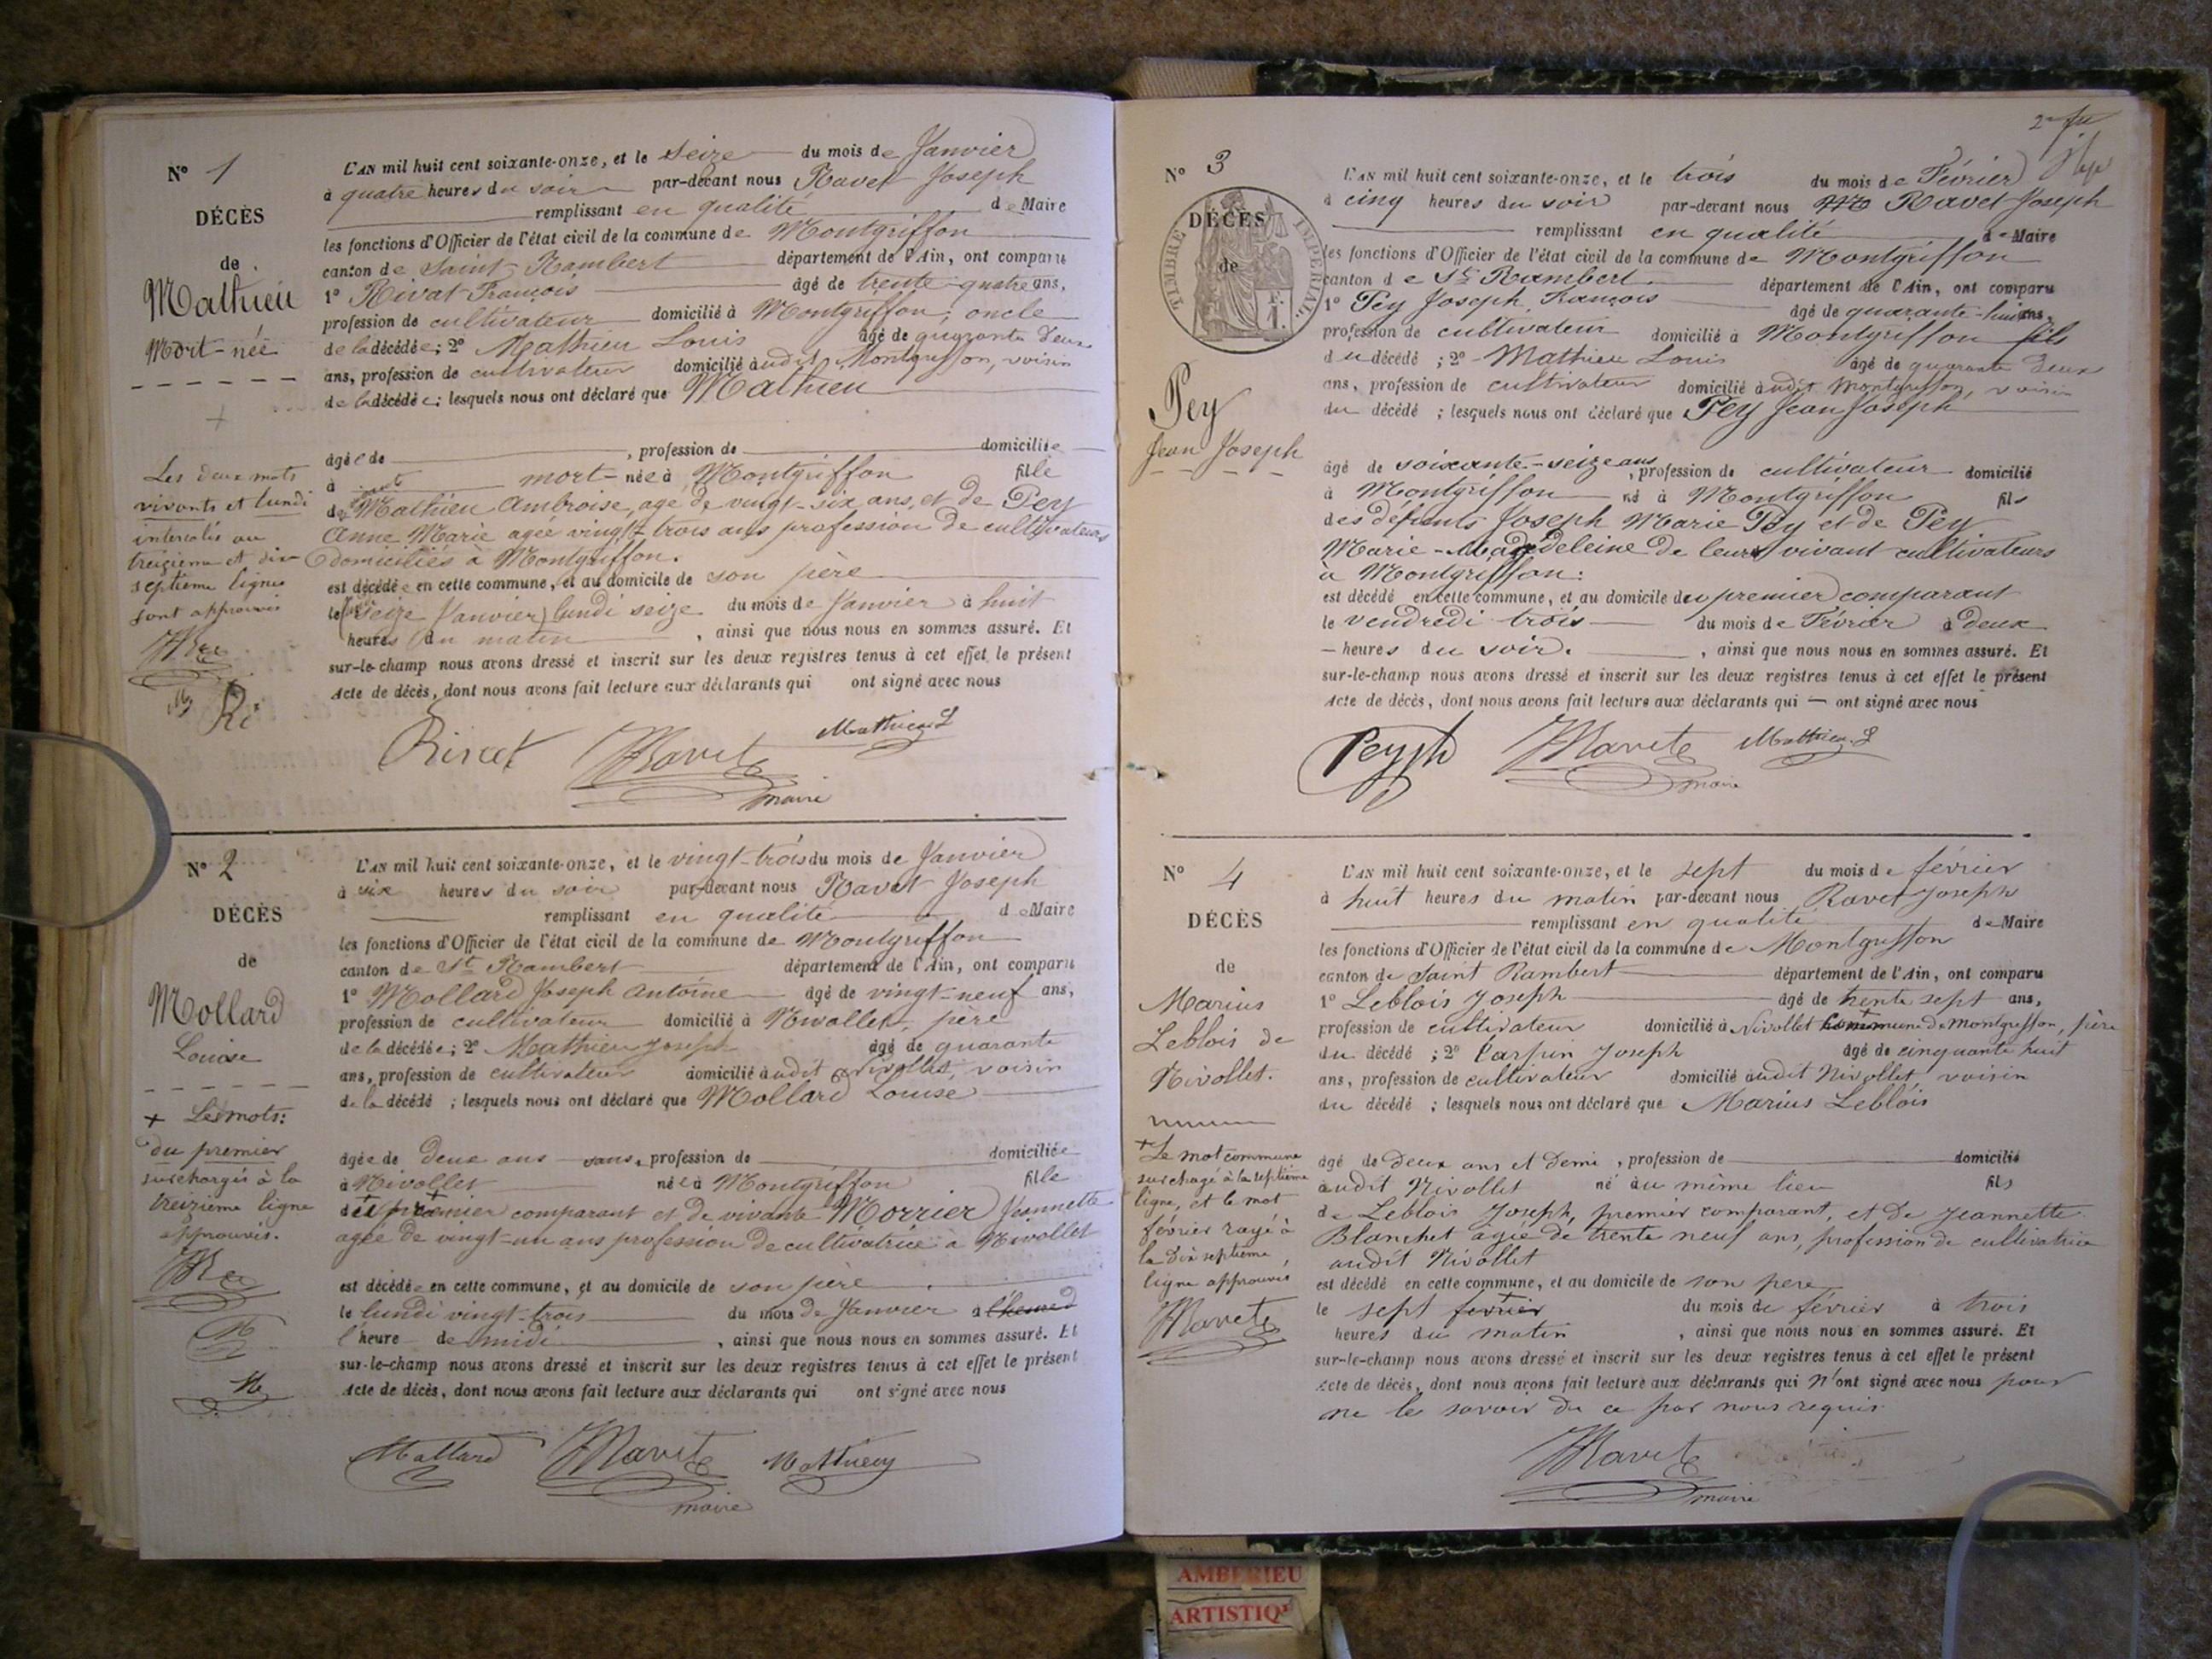 N° 1
DÉCÈS
de
Mathieu
Mort-née
L'AN mil huit cent soixante-onze, et le seize du mois de Janvier
à quatre heures du soir par-devant nous Ravet Joseph
remplissant en qualité de Maire
les fonctions d'Officier de l'état civil de la commune de Montgriffon
canton de Saint-Rambert département de l'Ain, ont comparu
1° Rivat François âgé de trente-quatre ans,
profession de cultivateur domicilié à Montgriffon, oncle
de la décédée; 2° Mathieu Louis âgé de quarante deux
ans, profession de cultivateur domicilié audit Montgriffon, voisin
de la décédée; lesquels nous ont déclaré que Mathieu
âgée de , profession de domiciliée
à mort-née à Montgriffon fille
de Mathieu Ambroise, agé de vingt-six ans, et de Pey
Anne Marie agée vingt-trois ans profession de cultivateurs
domiciliés à Montgriffon.
est décédée en cette commune, et au domicile de son père
le (seize Janvier) lundi seize du mois de Janvier à huit
heures du matin , ainsi que nous nous en sommes assuré. Et
sur-le-champ nous avons dressé et inscrit sur les deux registres tenus à cet effet le présent
Acte de décès, dont nous avons fait lecture aux déclarants qui ont signé avec nous
Les deux mots
vivants et lundi
intercalés au
treizième et dix
septième lignes
sont approuvés
Ri
Rivat Ravet Mathieu L
maire
N° 2
DÉCÈS
de
Mollard
Louise
L'AN mil huit cent soixante-onze, et le vingt-trois du mois de Janvier
à six heures du soir par-devant nous Ravet Joseph
remplissant en qualité de Maire
les fonctions d'Officier de l'état civil de la commune de Montgriffon
canton de St Rambert département de l'Ain, ont comparu
1° Mollard Joseph Antoine âgé de vingt-neuf ans,
profession de cultivateur domicilié à Nivollet, père
de la décédée; 2° Mathieu Joseph âgé de quarante
ans, profession de cultivateur domicilié audit Nivollet, voisin
de la décédé ; lesquels nous ont déclaré que Mollard Louise
âgée de deux ans sans, profession de domiciliée
à Nivollet née à Montgriffon fille
du premier comparant et de vivante Morrier Jeannette
agée de vingt-un ans profession de cultivatrice à Nivollet
est décédée en cette commune, et au domicile de son père
le lundi vingt-trois du mois de Janvier à
l'heure de midi , ainsi que nous nous en sommes assuré. Et
sur-le-champ nous avons dressé et inscrit sur les deux registres tenus à cet effet le présent
Acte de décès, dont nous avons fait lecture aux déclarants qui ont signé avec nous
+ Les mots:
du premier
surchargés à la
treizième ligne
approuvés.
Mollard Ravet Mathieu
maire
2e
N° 3
DÉCÈS
de
TIMBRE IMPÉRIAL
1 F.
Pey
Jean Joseph
L'AN mil huit cent soixante-onze, et le trois du mois de Février
à cinq heures du soir par-devant nous Ravet Joseph
remplissant en qualité de Maire
les fonctions d'Officier de l'état civil de la commune de Montgriffon
canton de St Rambert département de l'Ain, ont comparu
1° Pey Joseph François âgé de quarante-huit ans,
profession de cultivateur domicilié à Montgriffon fils
du décédé ; 2° Mathieu Louis âgé de quarante deux
ans, profession de cultivateur domicilié audit Montgriffon, voisin
du décédé ; lesquels nous ont déclaré que Pey Jean Joseph
âgé de soixante-seize ans, profession de cultivateur domicilié
à Montgriffon né à Montgriffon fils
des défunts Joseph Marie Pey et de Pey
Marie-Madedeleine de leurs vivant cultivateurs
à Montgriffon:
est décédé en cette commune, et au domicile du premier comparant
le vendredi trois du mois de Février à deux
heures du soir. , ainsi que nous nous en sommes assuré. Et
sur-le-champ nous avons dressé et inscrit sur les deux registres tenus à cet effet le présent
Acte de décès, dont nous avons fait lecture aux déclarants qui — ont signé avec nous
Pey Jh Ravet Mathieu L
maire
N° 4
DÉCÈS
de
Marius
Leblois de
Nivollet.
L'AN mil huit cent soixante-onze, et le sept du mois de février
à huit heures du matin par-devant nous Ravet Joseph
remplissant en qualité de Maire
les fonctions d'Officier de l'état civil de la commune de Montgriffon
canton de Saint Rambert département de l'Ain, ont comparu
1° Leblois Joseph âgé de trente sept ans,
profession de cultivateur domicilié à Nivollet commune de Montgriffon, père
du décédé ; 2° Carpin Joseph âgé de cinquante huit
ans, profession de cultivateur domicilié audit Nivollet, voisin
du décédé ; lesquels nous ont déclaré que Marius Leblois
âgé de deux ans et demi , profession de domicilié
audit Nivollet né au même lieu fils
de Leblois Joseph, premier comparant, et de Jeannette
Blanchet agée de trente neuf ans, profession de cultivatrice
audit Nivollet
est décédé en cette commune, et au domicile de son père
le sept février du mois de février à trois
heures du matin , ainsi que nous nous en sommes assuré. Et
sur-le-champ nous avons dressé et inscrit sur les deux registres tenus à cet effet le présent
Acte de décès, dont nous avons fait lecture aux déclarants qui n'ont signé avec nous pour
ne le savoir de ce par nous requis.
+ Le mot commune
surchagé à la septième
ligne, et le mot
février rayé à
la dix septième
ligne approuvés
Ravet
Ravet
maire
AMBERIEU
ARTISTIQ